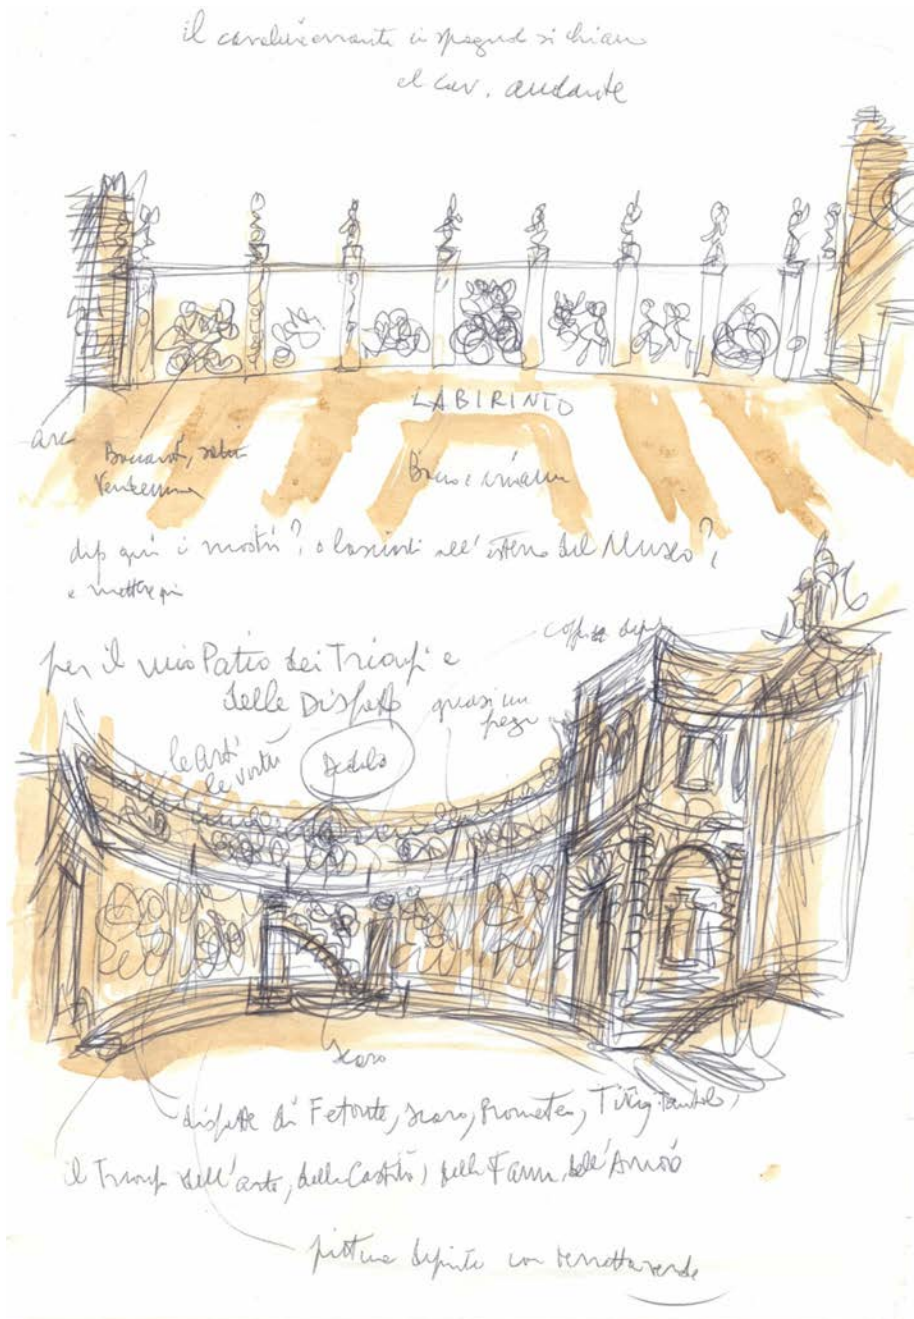 il cavaliere errante in spagnolo si chiama
el cav. andante
LABIRINTO
arc
Baccanti,
Vendemmia
Bacco e Arianna
dip qui i mostri? o lasciarli all'esterno del Museo?
e mettere qui
per il mio Patio dei Trionfi e
delle Disfatte
quasi un
le arti
le virtù
Dedalo
Icaro
disfatte di Fetonte, Icaro, Prometeo, Tizio, Tantalo,
il Trionfo dell'arte, della Castità, della Fama, dell'Amore
pitture dipinte con terretta verde